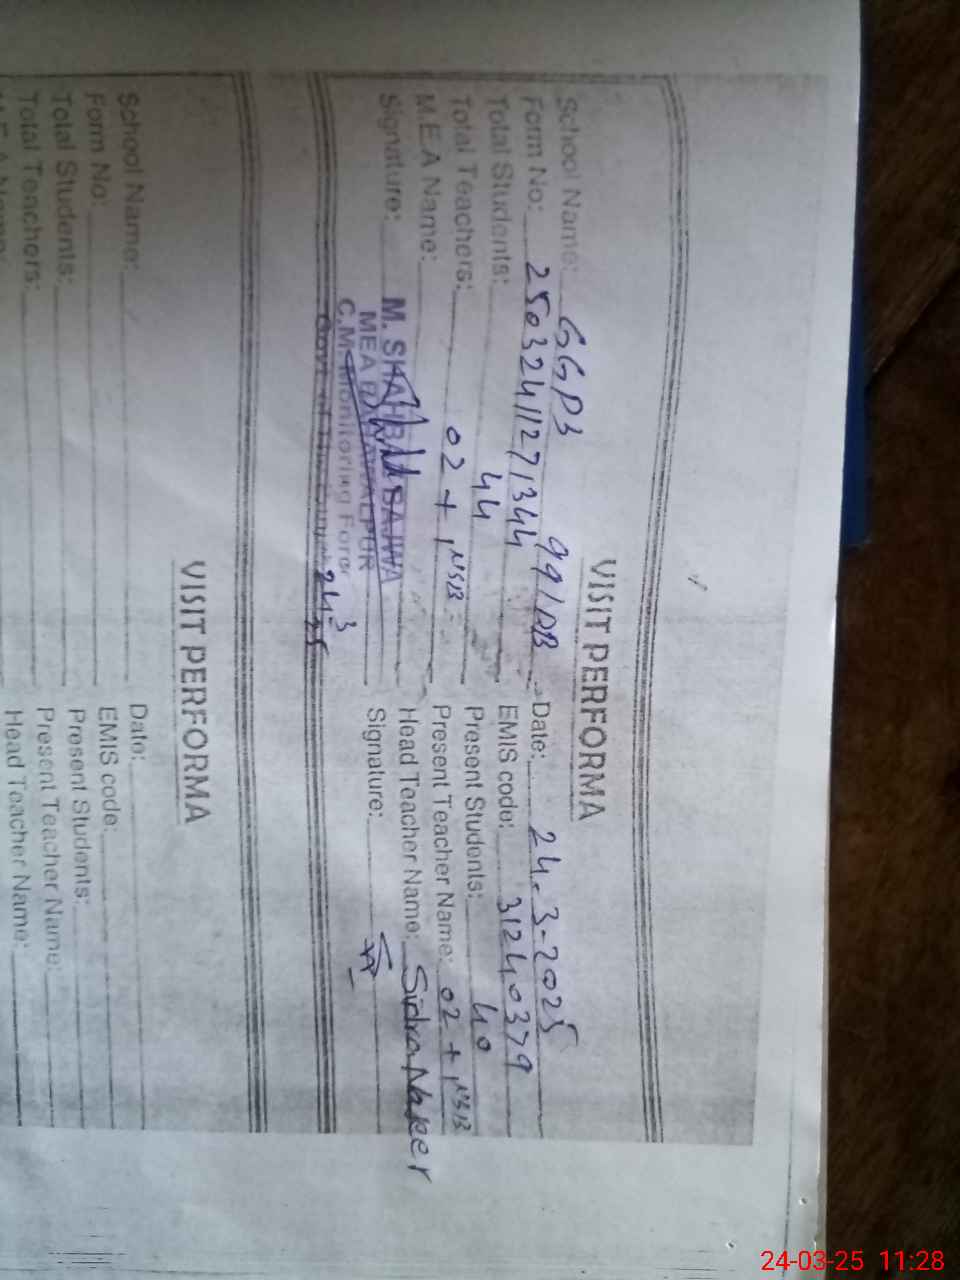 VISIT PERFORMA
School Name: GGPS 99/DB Date: 24.3-2025
Form No: 25032411271344 EMIS code: 31240379
Total Students: 44 Present Students: 40
Total Teachers: 02 + 1 NSB Present Teacher Name: 02 + 1 NSB
M.E.A Name: Head Teacher Name: Sidra Naseer
Signature: Signature:
M. SHAHBAZ BAJWA
MEA BAHAWALPUR
C.M Monitoring Force
Govt of
24-3-25
VISIT PERFORMA
School Name: Date:
Form No: EMIS code:
Total Students: Present Students:
Total Teachers: Present Teacher Name:
M.E.A Name: Head Teacher Name:
24-03-25 11:28